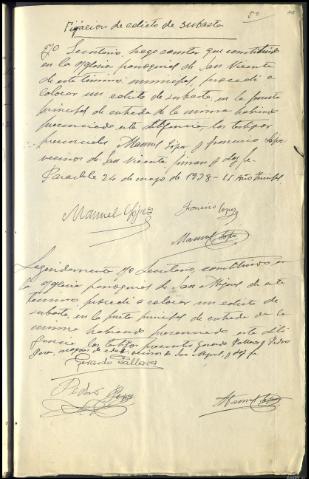 Fijacion de edicto de subasta
Yo Secretario hago constar que constituido
en la iglesia parroquial de San Vicente
de este termino municipal procedi a
colocar un edicto de subasta en la puerta
principal de entrada de la misma habiendo
presenciado esta diligencia, los testigos
presenciales Manuel López y Francisco López
vecinos de San Vicente firman y doy fe.
Carballo 24 de mayo de 1938 - II Año Triunfal
Manuel López
Francisco Lopez
Manuel
Seguidamente yo Secretario, constituido en
la iglesia parroquial de San Miguel de este
termino procedi a colocar un edicto de
subasta, en la puerta principal de entrada de la
misma habiendo presenciado esta dili
gencia los testigos presentes Gerardo Pallares y Pedro
vecinos de San Miguel y doy fe
Gerardo Pallares
Pedro
Manuel